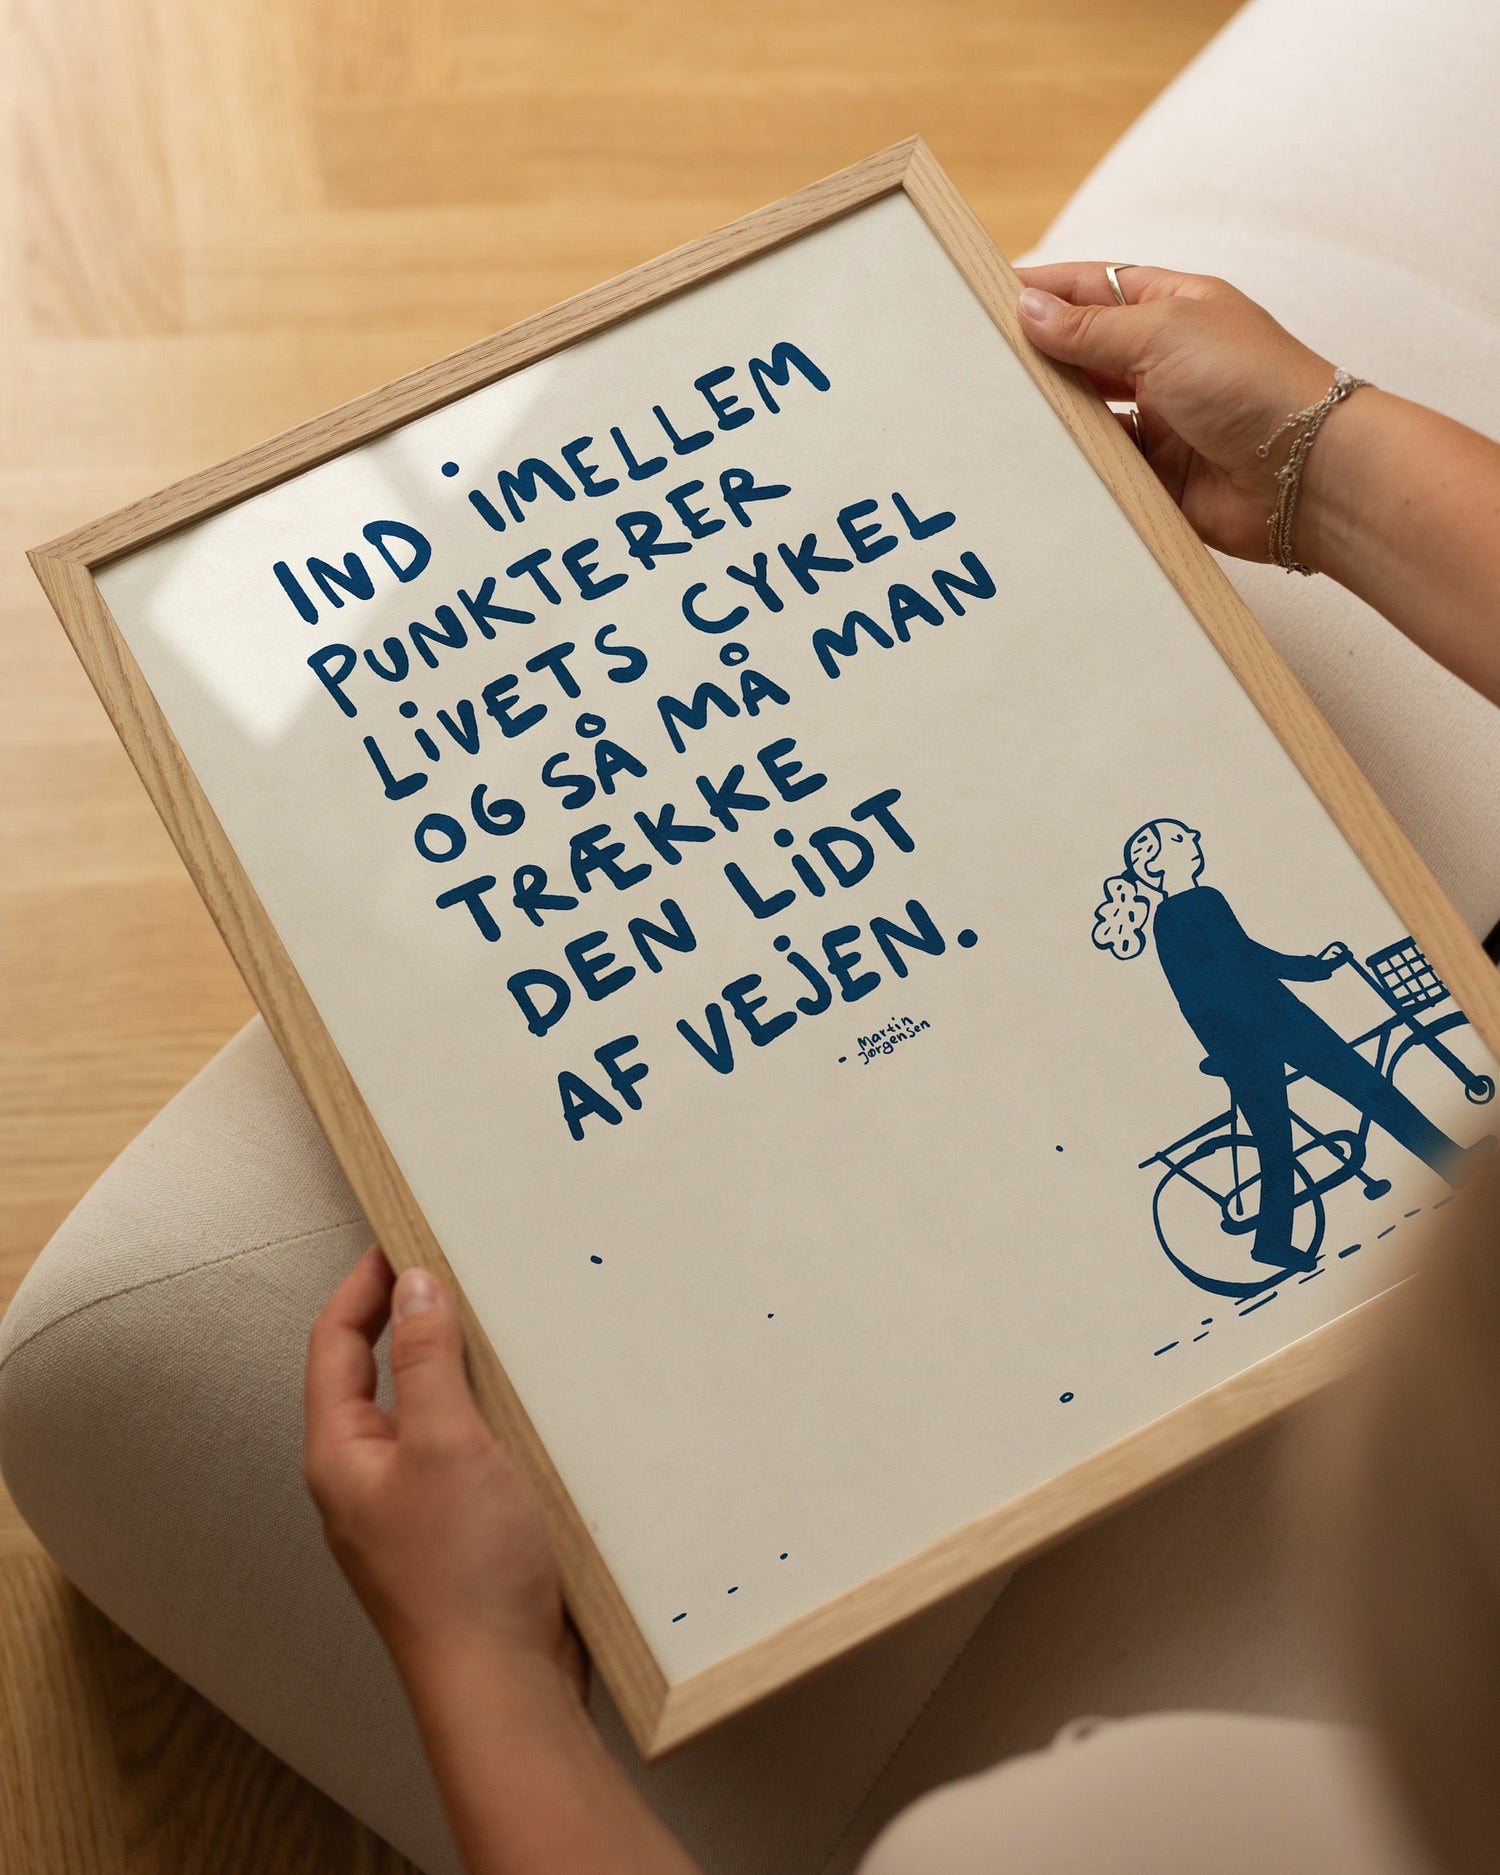 IND iMELLEM
PUNKTERER
LiVETS CYKEL
OG SÅ MÅ MAN
TRÆKKE
DEN LiDT
AF VEJEN.
- Martin
Jørgensen